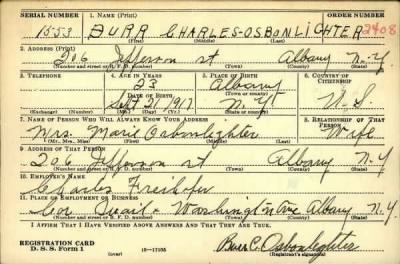 SERIAL NUMBER 1. NAME (Print) ORDER NUMBER
1553 BURR CHARLES-OSBONLIGHTER 2408
(First) (Middle) (Last)
2. ADDRESS (Print)
206 Jefferson st Albany N-Y
(Number and street or R. F. D. number) (Town) (County) (State)
3. TELEPHONE 4. AGE IN YEARS 5. PLACE OF BIRTH 6. COUNTRY OF CITIZENSHIP
23 Albany
DATE OF BIRTH (Town or county)
Sept 21 1917 N.Y. U.S.
(Exchange) (Number) (Mo.) (Day) (Yr.) (State or country)
7. NAME OF PERSON WHO WILL ALWAYS KNOW YOUR ADDRESS 8. RELATIONSHIP OF THAT PERSON
Mrs. Marie Osbonlighter Wife
(Mr., Mrs., Miss) (First) (Middle) (Last)
9. ADDRESS OF THAT PERSON
206 Jefferson st Albany N.Y
(Number and street or R. F. D. number) (Town) (County) (State)
10. EMPLOYER'S NAME
Charles Freihofer
11. PLACE OF EMPLOYMENT OR BUSINESS
Cor Quail + Washington Ave Albany N.Y.
(Number and street or R. F. D. number) (Town) (County) (State)
I AFFIRM THAT I HAVE VERIFIED ABOVE ANSWERS AND THAT THEY ARE TRUE.
REGISTRATION CARD
D. S. S. Form 1 (over) Burr C. Osbonlighter
(Registrant's signature)